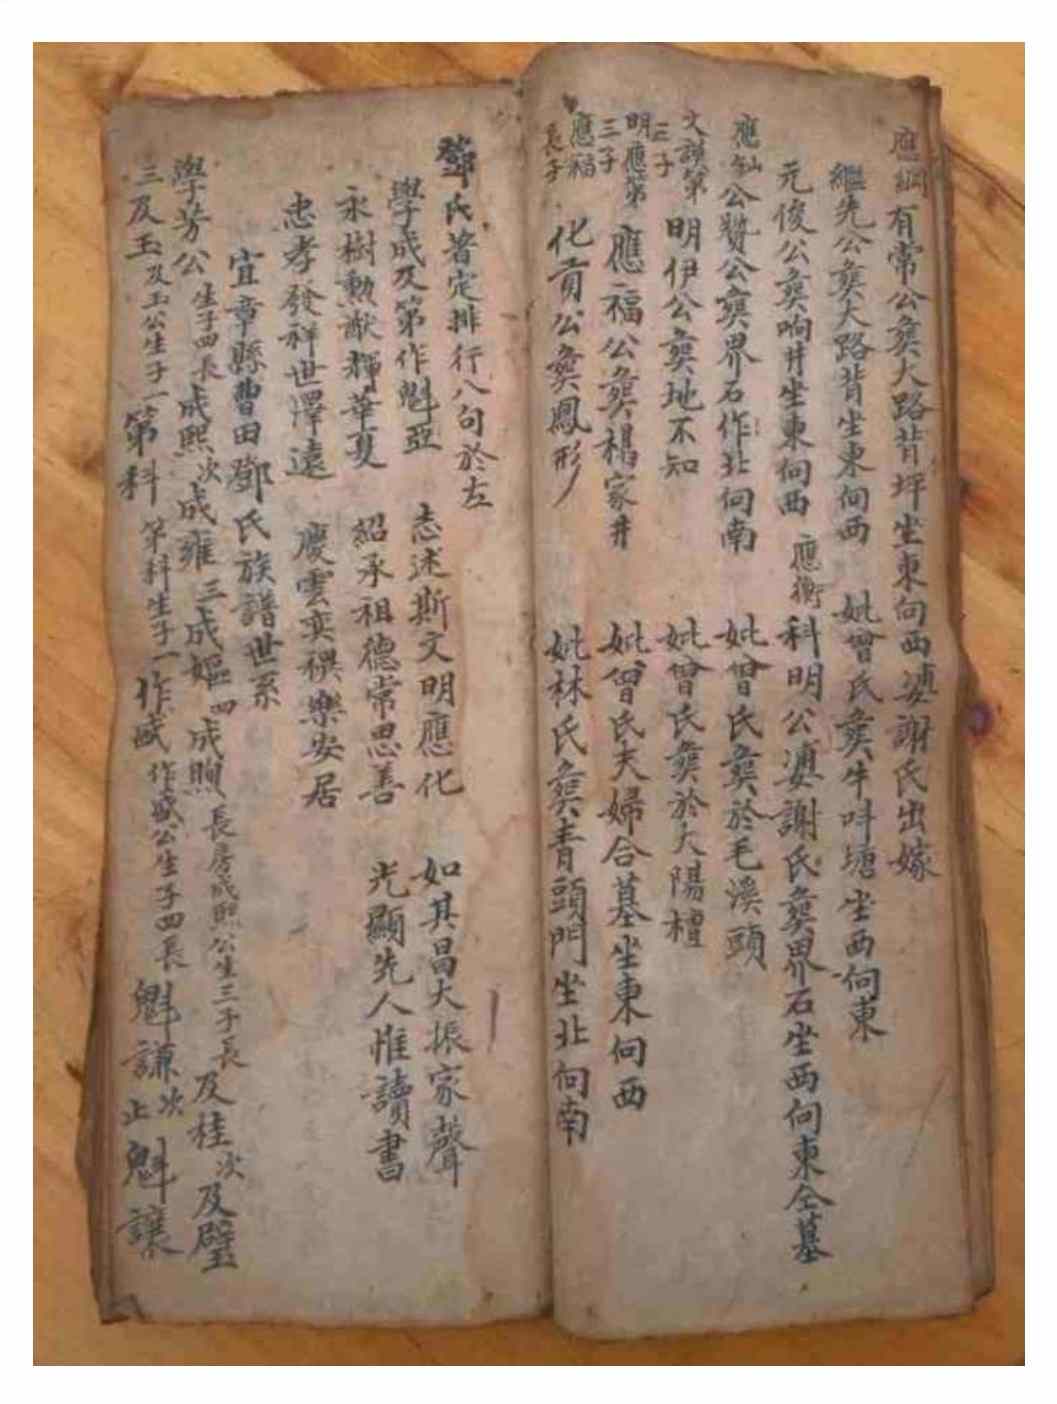 應綱 有常公𦵏大路背坪坐東向西 婆謝氏出嫁
繼先公𦵏大路背坐東向西 妣曾氏𦵏牛吽塘坐西向東
元俊公𦵏响井坐東向西 應衡 科明公婆謝氏𦵏界石坐西向東仝墓
應 公贊公𦵏界石作北向南 妣曾氏𦵏於毛溪頭
文謨第三子 明伊公𦵏地不知 妣曾氏𦵏於大陽檀
明應第三子 應福公𦵏楊家井 妣曾氏夫婦合墓坐東向西
應福長子 化貢公𦵏鳳形 妣林氏𦵏青頭門坐北向南
鄧氏著定排行八句於左
學成及第作魁亞 志述斯文明應化 如其昌大振家聲
永樹勳猷輝華夏 紹承祖德常思善 光顯先人惟讀書
忠孝發祥世澤遠 慶雲奕禩樂安居
宜章縣曹田鄧氏族譜世系
學芳公生子四長成熙次成雍三成嫗四成煦長房成熙公生三子長及桂次及璧
三及玉及玉公生子一第科第科生子一作盛作盛公生子四長魁謙次魁讓